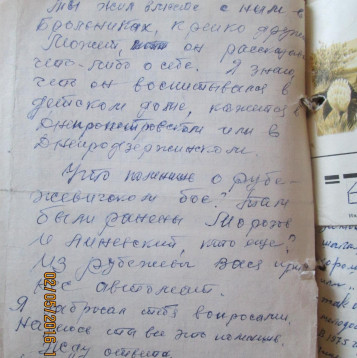 Мы жил вместе с ним в
Брольниках, крепко друж
Может, он рассказы
чего-либо о себе. Я знаю,
что он воспитывался в
детском доме, кажется в
Днепропетровском или в
Днепродзержинском.
Что помнишь о Рубе-
жевичском бое? Там
были ранены Морозов
и Линевский, кто еще?
Из Рубежевич Вася при
нес автомат.
Я забросал тебя вопросами,
Надеюсь ты все это помнишь.
Жду ответа.
02/05/2015